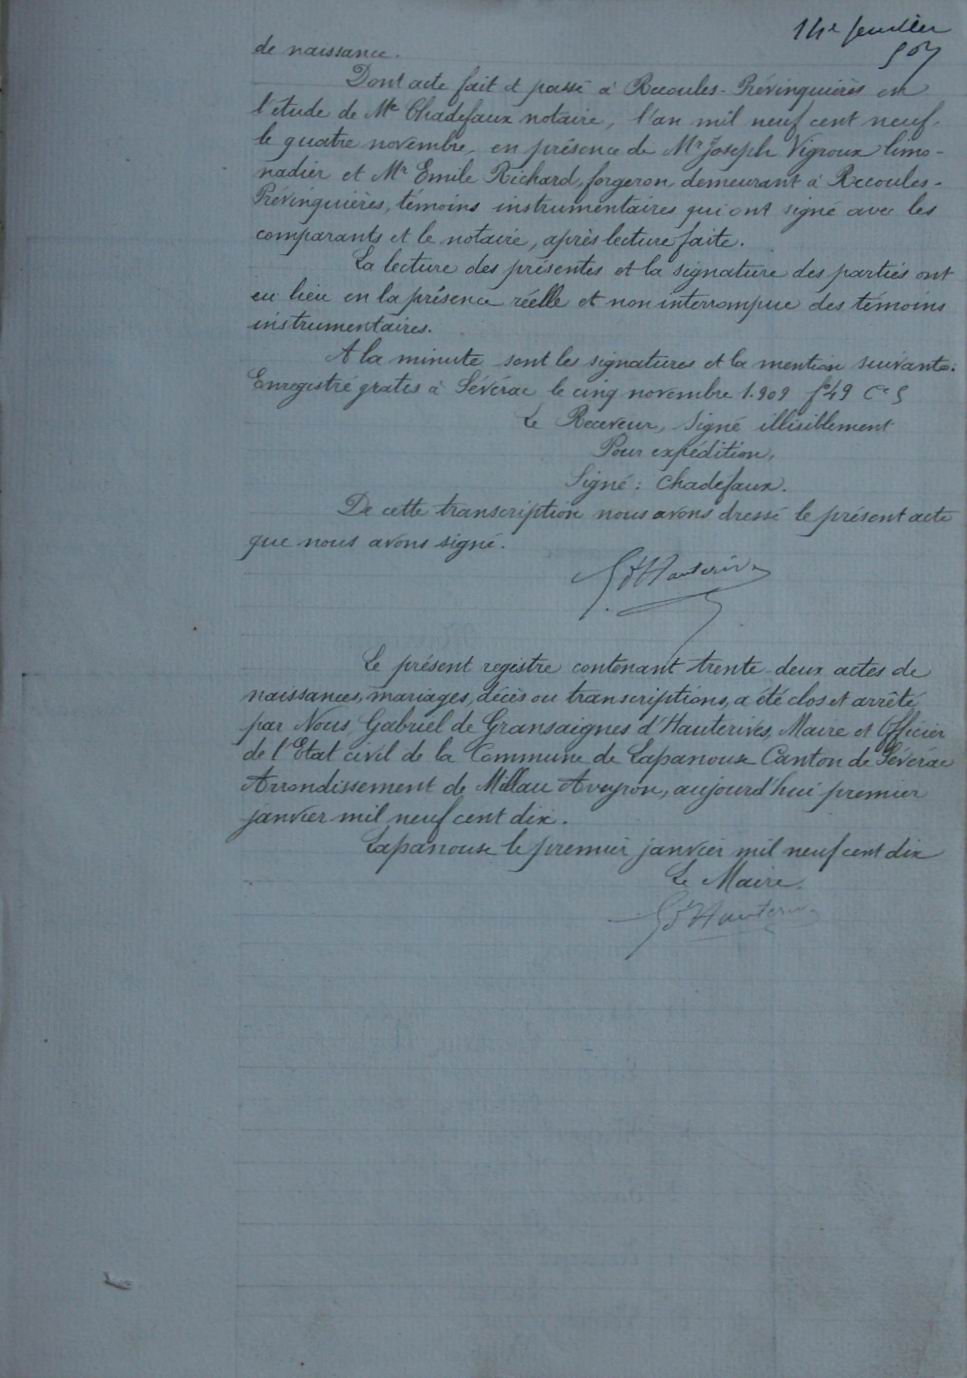 14e feuillet
de naissance.
Dont acte fait et passé à Recoules-Prévinquières en
l'étude de Me Chadefaux notaire, l'an mil neuf cent neuf,
le quatre novembre, en présence de Mr Joseph Vigroux limo-
nadier et Mr Emile Richard, forgeron, demeurant à Recoules-
Prévinquières, témoins instrumentaires qui ont signé avec les
comparants et le notaire, après lecture faite.
La lecture des présentes et la signature des parties ont
eu lieu en la présence réelle et non interrompue des témoins
instrumentaires.
A la minute sont les signatures et la mention suivante:
Enregistré gratis à Sévérac le cinq novembre 1.909 fo 49 Ce 5
Le Receveur, Signé illisiblement
Pour expédition,
Signé: Chadefaux.
De cette transcription nous avons dressé le présent acte
que nous avons signé.
G d'Hauterives
Le présent registre contenant trente-deux actes de
naissances, mariages, décès ou transcriptions, a été clos et arrêté
par Nous, Gabriel de Gransaignes d'Hauterives, Maire et Officier
de l'Etat civil de la Commune de Lapanouse Canton de Sévérac
Arrondissement de Millau Aveyron, aujourd'hui premier
janvier mil neuf cent dix.
Lapanouse le premier janvier mil neuf cent dix
Le Maire.
G d'Hauterives